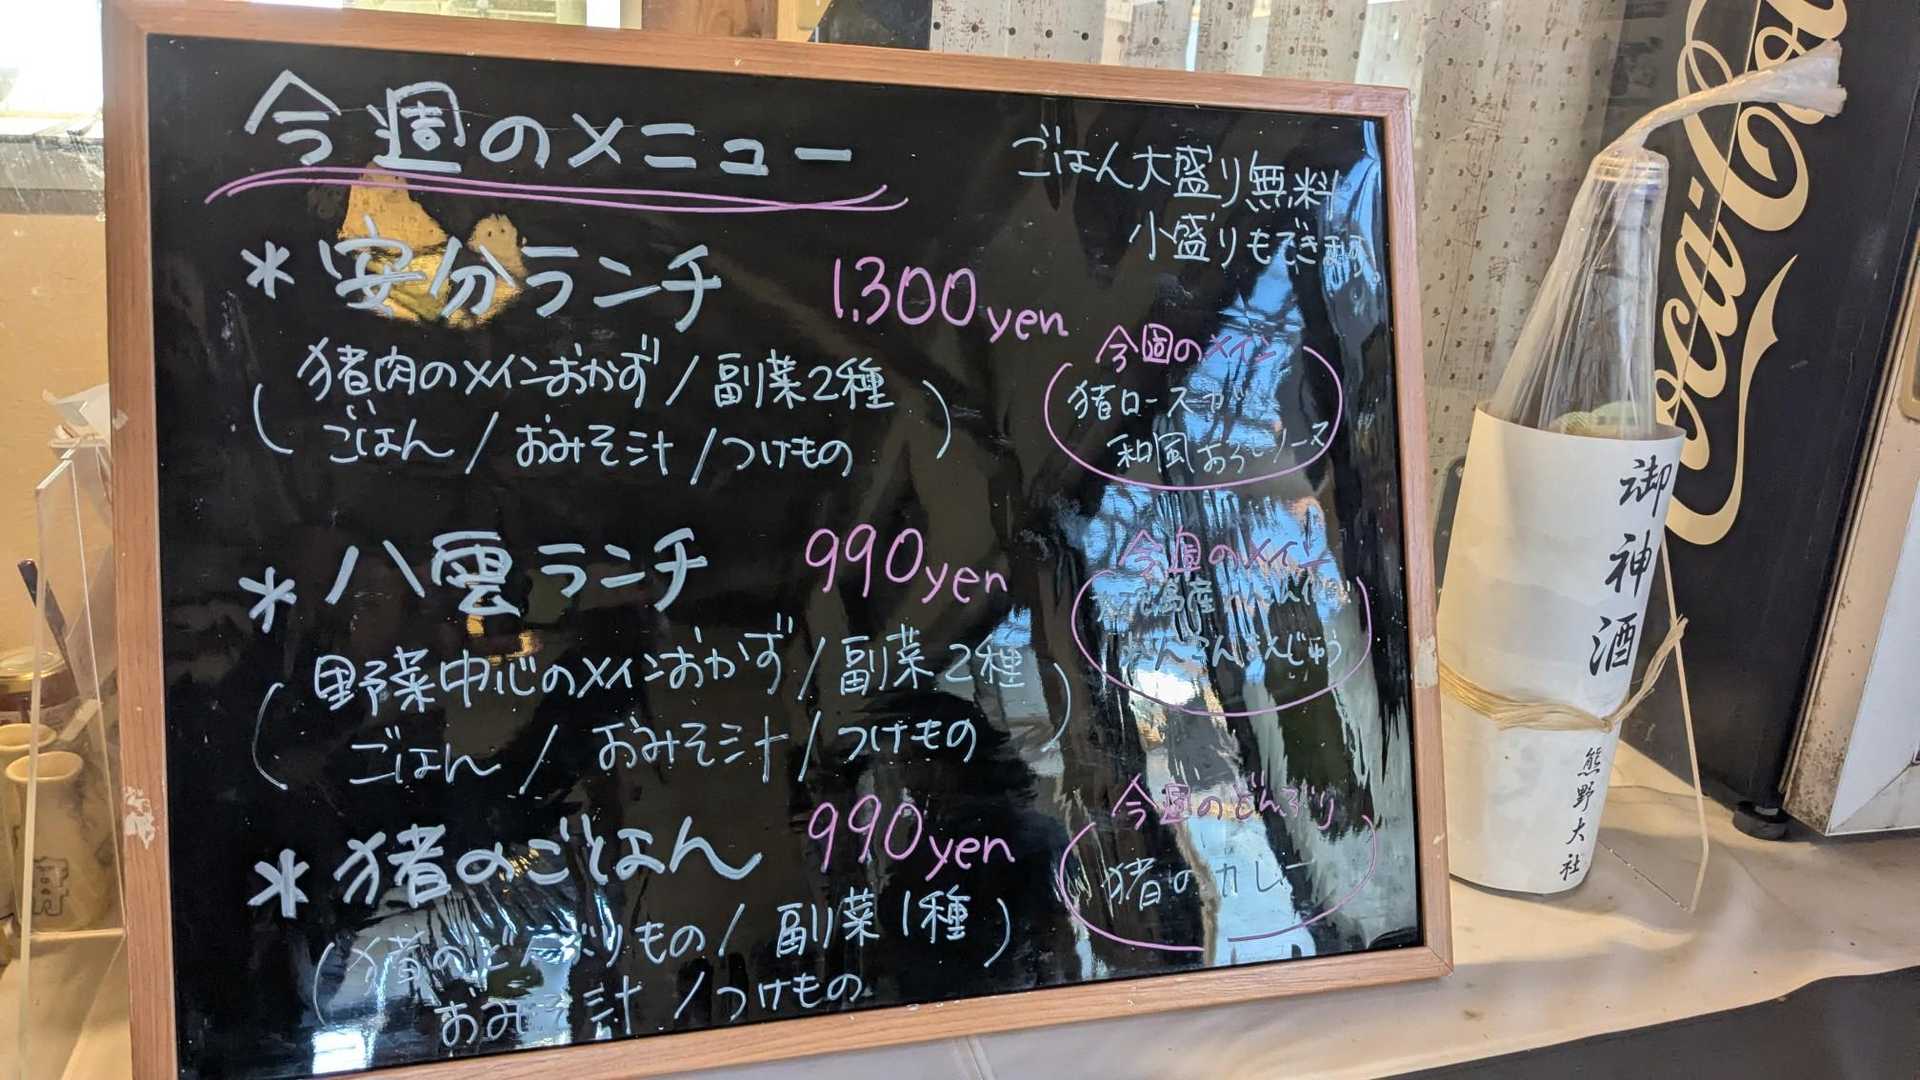 今週のメニュー
ごはん大盛り無料
小盛りもできます。
* 安分ランチ 1.300yen
(猪肉のメインおかず/副菜2種
ごはん/おみそ汁/つけもの)
今週のメイン
猪ロースカツ
和風おろしソース
* 八雲ランチ 990yen
(野菜中心のメインおかず/副菜2種
ごはん/おみそ汁/つけもの)
今週のメイン
れんこんまんじゅう
* 猪のごはん 990yen
(猪のどんぶりもの/副菜1種
おみそ汁/つけもの)
今週のどんぶり
猪のカレー
御神酒
熊野大社
Coca-Cola